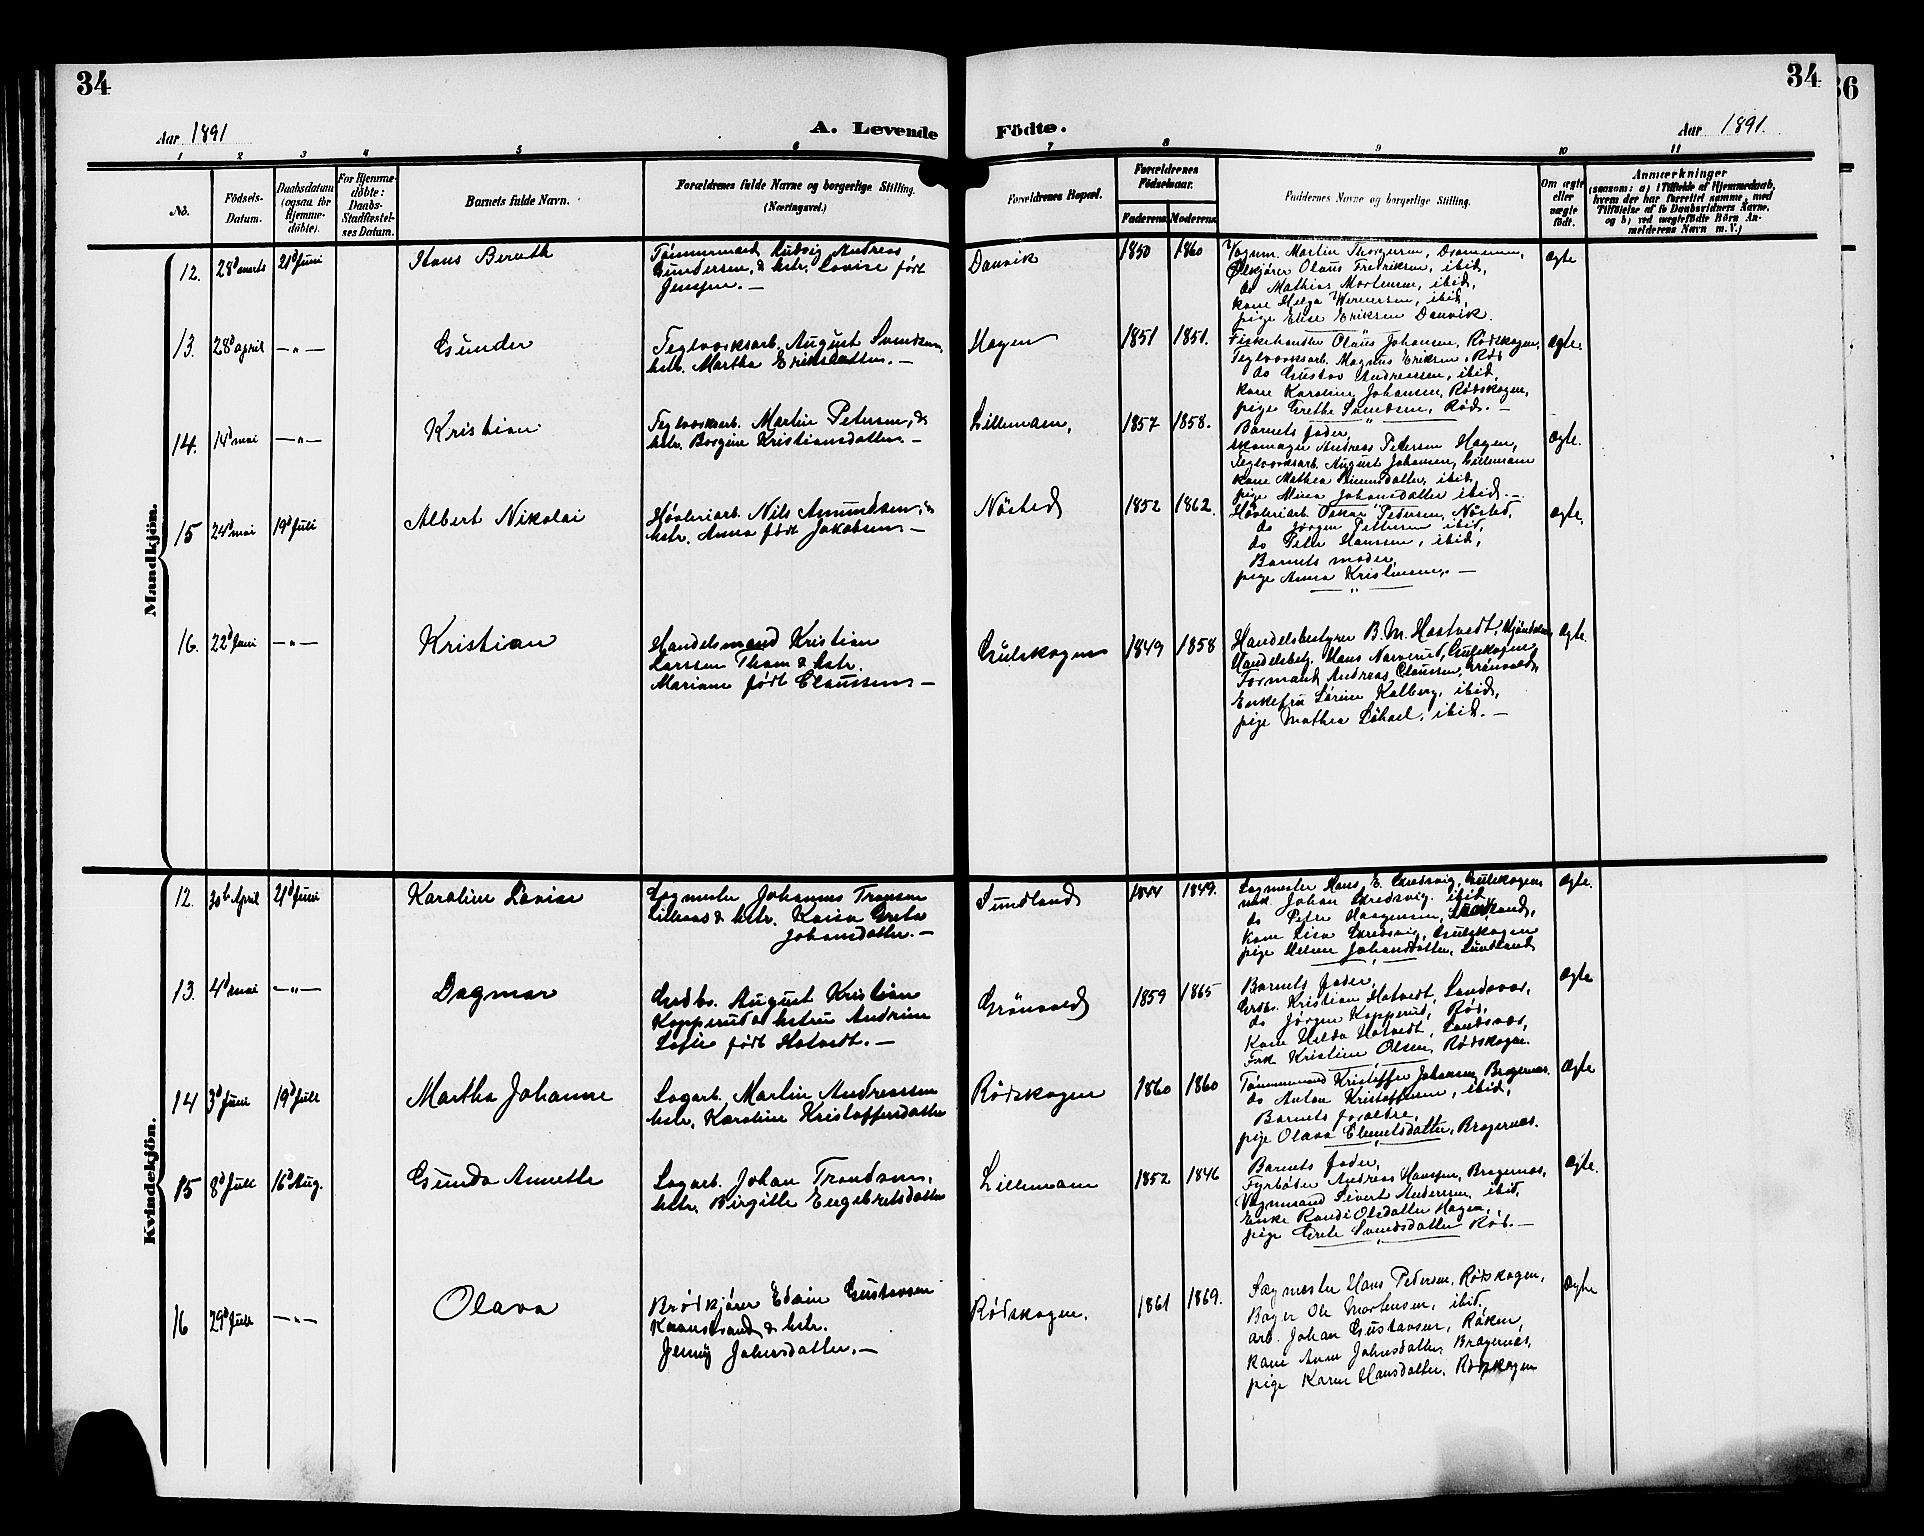 34
34
36
Aar 1891
A. Levende
Födte.
Aar 1891.
1 2 3 4 5 6 7 8 9 10 11
No.
Födsels-
Datum.
Daabsdatum
(ogsaa for
Hjemme-
döbte).
For Hjemme-
döbte:
Daabs-
Stadfæstel-
ses Datum.
Barnets fulde Navn.
Forældrenes fulde Navne og borgerlige Stilling.
(Næringsvei.)
Forældrenes Bopæl.
Forældrenes
Födselsaar.
Faderens
Moderens
Faddernes Navne og borgerlige Stilling.
Om ægte
eller
uægte
født.
Anmærkninger
(saasom: a) i Tilfælde af Hjemmedaab,
hvem der har forrettet samme, med
Tilföielse af to Daabsvidners Navne,
og b) ved uægtefödte Börn An-
melderens Navn m. V.)
Mandkjön.
12. 28d marts 21d Juni
Hans Bernth
Tömmermand Ludvig Andreas
Gundersen, & hstr. Lovise født
Jensen. —
Danvik
1850 1860
Vognm. Martin Thorgersen, Drammen,
Ølkjører Olaus Fredriksen, ibid,
do Mathias Mortensen, ibid,
kone Helga Wernersen, ibid,
pige Elise Eriksen Danvik.
Ægte
13. 28d april —„—
Gunder
Teglverksarb. August Svendsen,
hstr. Martha Eriksdatter. —
Hagen
1851 1851.
Fiskehandler Olaus Johansen, Rødskogen,
Teglverksarb. Magnus Eriksen, Rød
do Gustav Andreassen, ibid,
kone Karoline Johansen, Rødskogen,
pige Grethe Svendsen, Rød. —
Ægte.
14. 14d mai —„—
Kristian
Teglverksarb. Martin Petersen, &
hstr. Borgine Kristiansdatter. —
Lillemoen,
1857 1858.
Barnets fader,
skomager Andreas Petersen Hagen,
Teglverksarb. August Johansen, Lillemoen
kone Mathea Simensdatter, ibid,
pige Mina Johansdatter ibid. —
Ægte.
15 24d mai 19d Juli
Albert Nikolai
Høvleriarb. Nils Amundsen, &
hstr. Anna født Jakobsen —
Nøsted
1852 1862.
Høvleriarb. Oskar Pedersen, Nøsted,
do Jørgen Pettersen ibid,
do Peter Hanssen, ibid,
Barnets moder,
pige Anna Kristiansen. —
Ægte.
16. 22d Juni —„—
Kristian
Handelsmand Kristian
Larssen Thom & hstr.
Mariane født Claussen. —
Gulskogen
1849 1858
Handelsbestyrer B. M. Hostvedt, Mjøndalen,
Handelsbetj. Hans Narverud, Gulskogen,
Formand Andreas Claussen, Grønvold,
Enkefru Sørine Kolberg, ibid,
pige Mathea Løhoel, ibid. —
Ægte.
Kvindekjön.
12. 30te April 21d Juni
Karoline Lovise
Sagmester Johannes Transen
Lilleaas & hstr. Kaisa Greta
Johansdatter. —
Sundland
1844 1849.
Sagmester Hans E. Gredsvig, Gulskogen
Johan Gredsvig. ibid,
do Peter Haagensen, Sundland,
kone Lisa Gredsvig, Gulskogen
pige Helene Johansdatter, Sundland
Ægte.
13. 4d mai —„—
Dagmar
Grdbr. August Kristian
Kopperud & hstru Andrine
Sofie født Hotvedt. —
Grønvold
1859 1865
Barnets fader,
Grdbr. Kristian Hotvedt, Sandsvær,
do Jørgen Kopperud, Rød,
kone Hilda Hotvedt, Sandsvær,
Frk. Kristine Olsen, Rødskogen
Ægte
14 3d Juni 19d Juli
Martha Johanne
Sagarb. Martin Andreassen
hstr. Karoline Kristoffersdatter
Rødskogen
1860 1860
Tømmermand Kristoffer Johansen Bragernæs.
do Anton Kristoffersen, ibid,
Barnets forældre,
pige Olava Ebenetsdatter, Bragernæs.
Ægte
15 8d Juli 16d Aug.
Gunda Annette
Sagarb. Johan Trondsen,
hstr. Birgitte Engebretsdatter
Lillemoen
1852 1846
Barnets fader,
Fyrbøder Andreas Hansen, Bragernæs,
Vognmand Sivert Andersen, ibid,
Enke Randi Olsdatter Hagen,
pige Grete Svendsdatter Rød. —
Ægte.
16 29d Juli —„—
Olava
Brødkjører Edvin Gustavsen
Kaasestrand & hstr.
Jenny Johnsdatter. —
Rødskogen.
1861 1869.
Sagmester Hans Pedersen, Rødskogen,
Bager Ole Mortensen, ibid.
arb. Johan Gustavsen, Røken,
kone Anne Johnsdatter, Bragernæs,
pige Karen Hansdatter, Rødskogen
Ægte